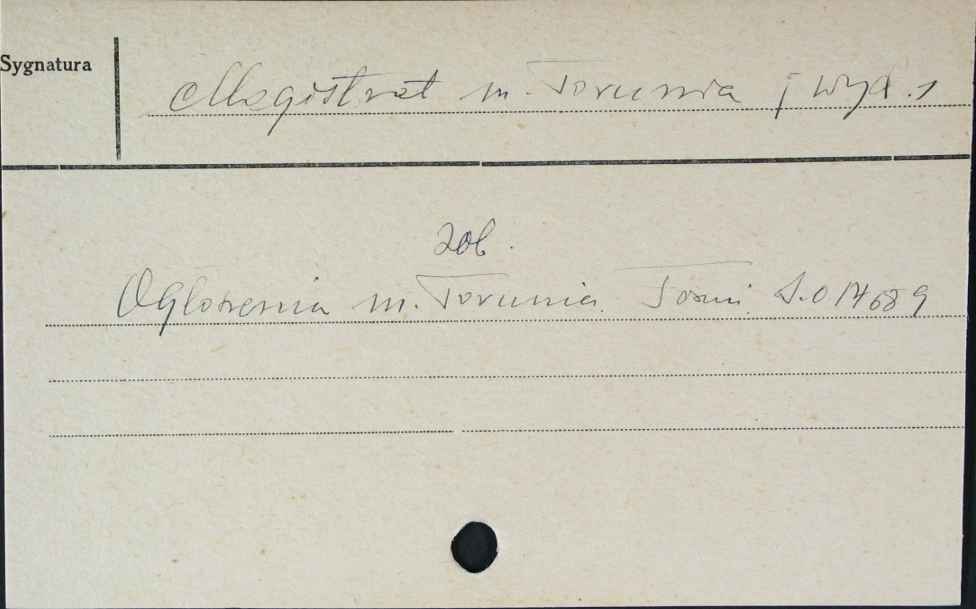 Sygnatura
Magistrat m. Torunia [wyd.]
zob.
Ogłoszenia m. Torunia. Toruń